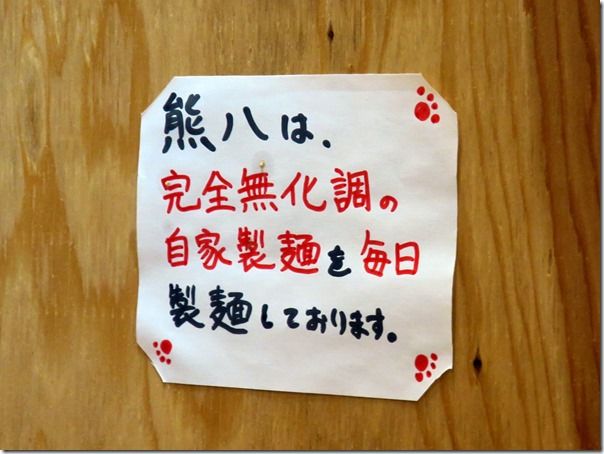 熊八は、
完全無化調の
自家製麺を毎日
製麺しております。